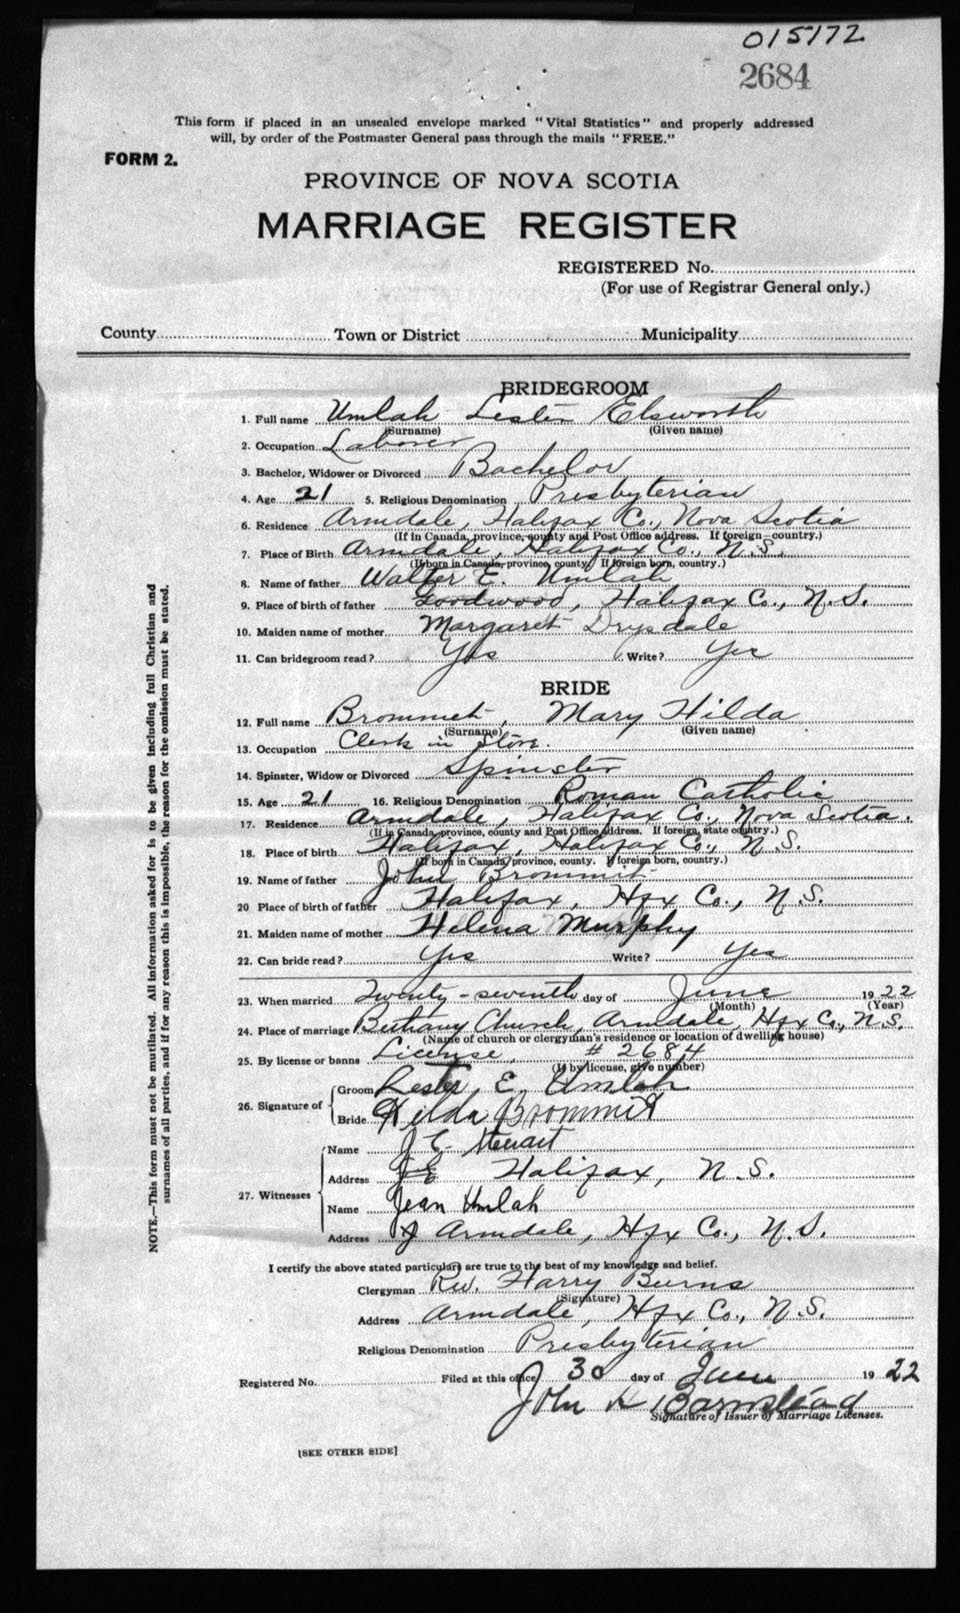 015172
2684
This form if placed in an unsealed envelope marked "Vital Statistics" and properly addressed
will, by order of the Postmaster General pass through the mails "FREE."
FORM 2.
PROVINCE OF NOVA SCOTIA
MARRIAGE REGISTER
REGISTERED No.
(For use of Registrar General only.)
County Town or District Municipality
BRIDEGROOM
1. Full name Umlah Lester Elsworth
(Surname) (Given name)
2. Occupation Laborer
3. Bachelor, Widower or Divorced Bachelor
4. Age 21 5. Religious Denomination Presbyterian
6. Residence Armdale, Halifax Co., Nova Scotia
(If in Canada, province, county and Post Office address. If foreign—country.)
7. Place of Birth Armdale, Halifax Co., N.S.
(If born in Canada, province, county. If foreign born, country.)
8. Name of father Walter E. Umlah
9. Place of birth of father Goodwood, Halifax Co., N.S.
10. Maiden name of mother Margaret Drysdale
11. Can bridegroom read? Yes Write? Yes
BRIDE
12. Full name Brommit, Mary Hilda
(Surname) (Given name)
13. Occupation Clerk in Store.
14. Spinster, Widow or Divorced Spinster
15. Age 21 16. Religious Denomination Roman Catholic
17. Residence Armdale, Halifax Co., Nova Scotia.
(If in Canada, province, county and Post Office address. If foreign, state country.)
18. Place of birth Halifax, Halifax Co., N.S.
(If born in Canada, province, county. If foreign born, country.)
19. Name of father John Brommit
20 Place of birth of father Halifax, Hfx Co., N.S.
21. Maiden name of mother Helena Murphy
22. Can bride read? Yes Write? Yes
23. When married Twenty-seventh day of June 1922
(Month) (Year)
24. Place of marriage Bethany Church, Armdale, Hfx Co., N.S.
(Name of church or clergyman's residence or location of dwelling house)
25. By license or banns License, # 2684
(If by license, give number)
26. Signature of Groom Lester E. Umlah
Bride Hilda Brommit
27. Witnesses Name J E Stewart
Address J E Halifax, N.S.
Name Jean Umlah
Address J Armdale, Hfx Co., N.S.
I certify the above stated particulars are true to the best of my knowledge and belief.
Clergyman Rev. Harry Burns
(Signature)
Address Armdale, Hfx Co., N.S.
Religious Denomination Presbyterian
Registered No. Filed at this office 30 day of June 1922
John H Barnstead
Signature of Issuer of Marriage Licenses.
[SEE OTHER SIDE]
NOTE.—This form must not be mutilated. All information asked for is to be given including full Christian and
surnames of all parties, and if for any reason this is impossible, the reason for the omission must be stated.